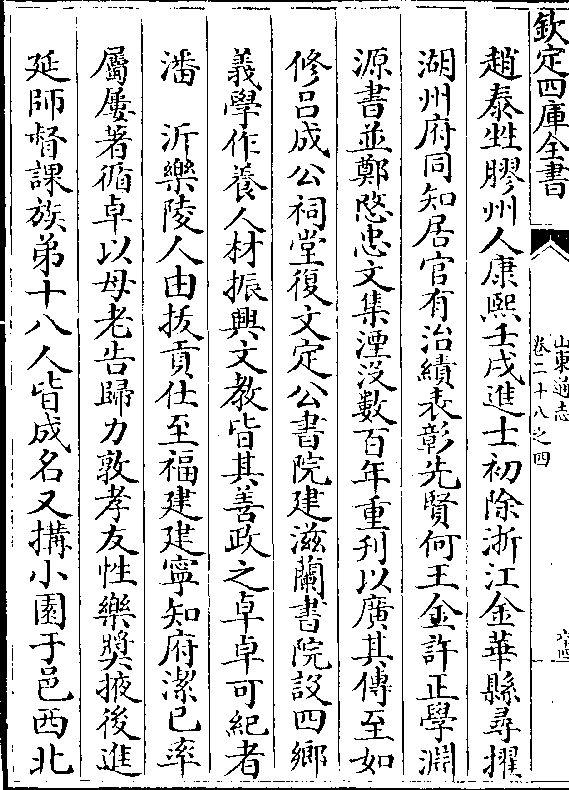 欽定四庫全書
山東通志
卷二十八之四
趙泰甡膠州人康熙壬戌進士初除浙江金華縣尋擢
湖州府同知居官有治績表彰先賢何王金許正學淵
源書並鄭愍忠文集湮沒數百年重刊以廣其傳至如
修呂成公祠堂復文定公書院建滋蘭書院設四鄉
義學作養人材振興文教皆其善政之卓卓可紀者
潘　沂樂陵人由拔貢仕至福建建寧知府潔已率
屬屢著循卓以母老告歸力敦孝友性樂獎掖後進
延師督課族弟十八人皆成名又搆小園于邑西北